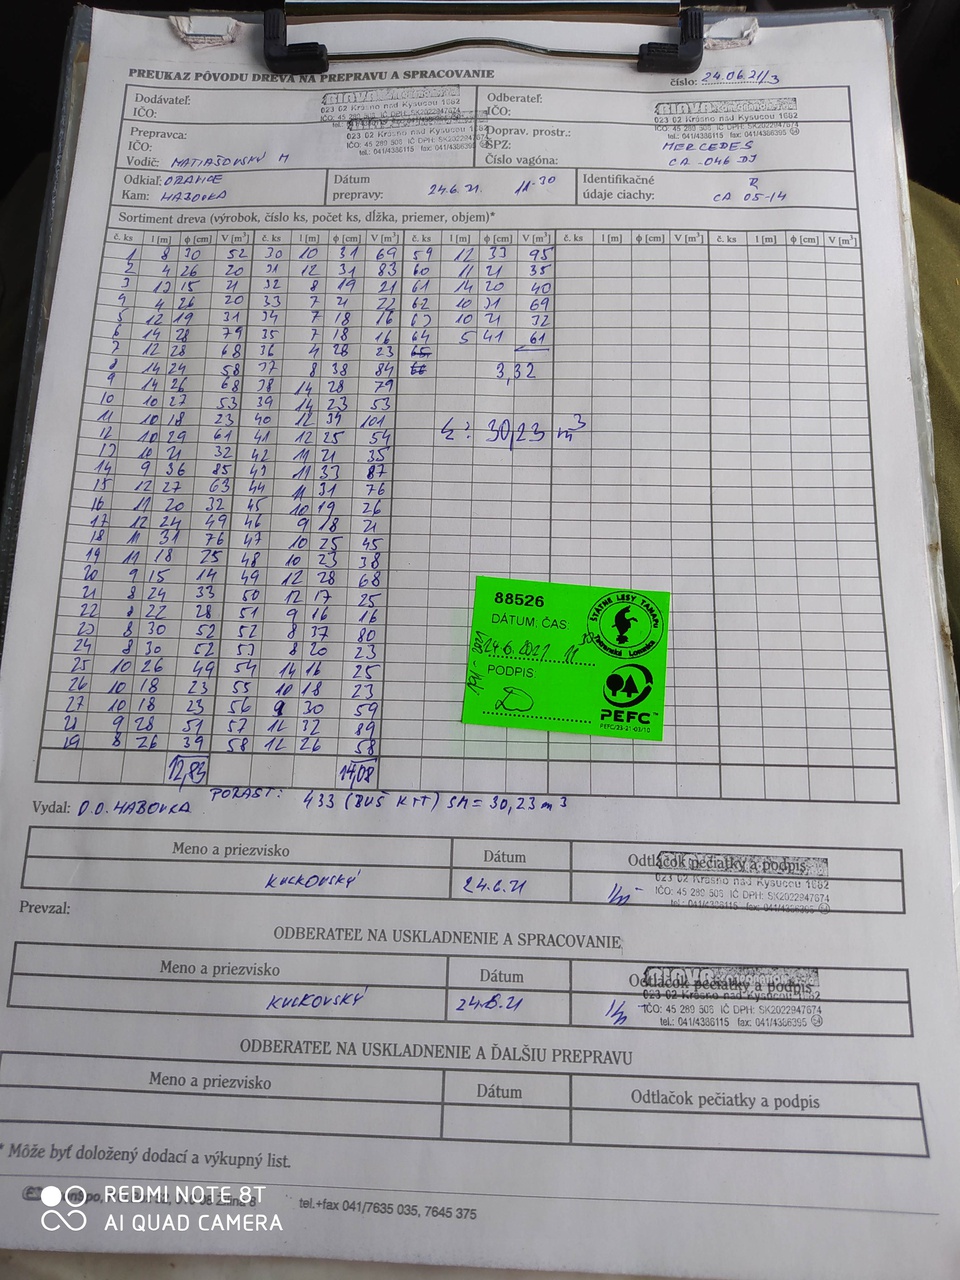 PREUKAZ PÔVODU DREVA NA PREPRAVU A SPRACOVANIE
číslo: 24.06.21/3
Dodávateľ:
IČO:
023 02 Krásno nad Kysucou 1682
Odberateľ:
IČO:
023 02 Krásno nad Kysucou 1682
IČO: 45 289 506 IČ DPH: SK2022947674
tel.: 041/4386115 fax: 041/4386395
Prepravca:
IČO:
Vodič: MATIAŠOVSKÝ M
IČO: 45 289 506 IČ DPH: SK2022947674
tel.: 041/4386115 fax: 041/4386395
Doprav. prostr.:
ŠPZ: MERCEDES
Číslo vagóna: CA -046 DJ
Odkiaľ: ORAVICE
Kam: HABOVKA
Dátum
prepravy: 24.6.21. 11-30
Identifikačné
údaje ciachy: R
CA 05-14
Sortiment dreva (výrobok, číslo ks, počet ks, dĺžka, priemer, objem)*
č. ks l [m] ϕ [cm] V [m³] č. ks l [m] ϕ [cm] V [m³] č. ks l [m] ϕ [cm] V [m³] č. ks l [m] ϕ [cm] V [m³] č. ks l [m] ϕ [cm] V [m³]
1 8 30 52 30 10 31 69 59 12 33 95
2 4 26 20 31 12 31 83 60 11 21 35
3 13 15 21 32 8 19 21 61 14 20 40
4 4 26 20 33 7 21 22 62 10 31 69
5 12 19 31 34 7 18 16 63 10 21 32
6 14 28 79 35 7 18 16 64 5 41 61
7 12 28 68 36 4 28 23 65
8 14 24 58 37 8 38 84 66 3,32
9 14 26 68 38 14 28 79
10 10 27 53 39 14 23 53
11 10 18 23 40 12 34 101
12 10 29 61 41 12 25 54 30,23 m³
13 10 21 32 42 11 21 35
14 9 36 85 43 11 33 87
15 12 27 63 44 11 31 76
16 11 20 32 45 10 19 26
17 12 24 49 46 9 18 21
18 11 31 76 47 10 25 45
19 11 18 25 48 10 23 38
20 9 15 14 49 12 28 68
21 8 24 33 50 12 17 25
22 8 22 28 51 9 16 16
23 8 30 52 52 8 37 80
24 8 30 52 53 8 20 23
25 10 26 49 54 14 16 25
26 10 18 23 55 10 18 23
27 10 18 23 56 9 30 59
28 9 28 51 57 12 32 89
29 8 26 39 58 12 26 58
12,83 14,08
88526
DÁTUM: ČAS:
24.6.2021 11 30
PODPIS:
ŠTÁTNE LESY TANAPu
Tatranská Lomnica
PEFC™
PEFC/23-21-03/10
Vydal: O.O. HABOVKA
PORAST: 433 (BUŠ KTT) SM = 30,23 m³
Meno a priezvisko Dátum Odtlačok pečiatky a podpis
KUCKOVSKÝ 24.6.21
023 02 Krásno nad Kysucou 1682
IČO: 45 289 506 IČ DPH: SK2022947674
tel.: 041/4386115 fax: 041/4386395
Prevzal:
ODBERATEĽ NA USKLADNENIE A SPRACOVANIE
Meno a priezvisko Dátum Odtlačok pečiatky a podpis
KUCKOVSKÝ 24.6.21
023 02 Krásno nad Kysucou 1682
IČO: 45 289 506 IČ DPH: SK2022947674
tel.: 041/4386115 fax: 041/4386395
ODBERATEĽ NA USKLADNENIE A ĎALŠIU PREPRAVU
Meno a priezvisko Dátum Odtlačok pečiatky a podpis
* Môže byť doložený dodací a výkupný list.
tel.+fax 041/7635 035, 7645 375
REDMI NOTE 8T
AI QUAD CAMERA